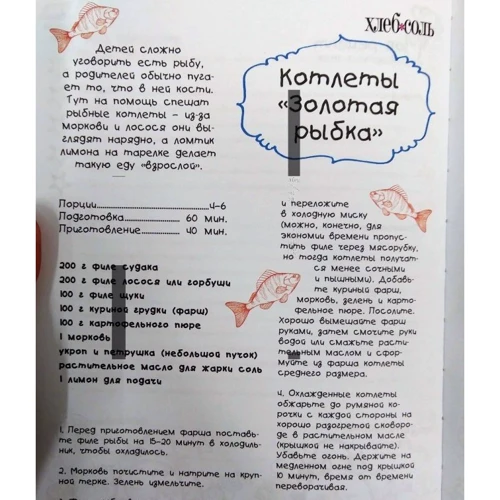 хлеб•соль
Детей сложно
уговорить есть рыбу,
а родителей обычно пуга-
ет то, что в ней кости.
Тут на помощь спешат
рыбные котлеты – из-за
моркови и лосося они вы-
глядят нарядно, а ломтик
лимона на тарелке делает
такую еду «взрослой».
Котлеты
«Золотая
рыбка»
Порции 4–6
Подготовка 60 мин.
Приготовление 40 мин.
200 г филе судака
200 г филе лосося или горбуши
100 г филе щуки
100 г куриной грудки (фарш)
100 г картофельного пюре
1 морковь
укроп и петрушка (небольшой пучок)
растительное масло для жарки соль
1 лимон для подачи
1. Перед приготовлением фарша поставь-
те филе рыбы на 15–20 минут в холодиль-
ник, чтобы охладилось.
2. Морковь почистите и натрите на круп-
ной терке. Зелень измельчите.
и переложите
в холодную миску
(можно, конечно, для
экономии времени пропус-
тить филе через мясорубку,
но тогда котлеты получат-
ся менее сочными
и пышными). Добавь-
те куриный фарш,
морковь, зелень и карто-
фельное пюре. Посолите.
Хорошо вымешайте фарш
руками, затем смочите руки
водой или смажьте расти-
тельным маслом и сфор-
муйте из фарша котлеты
среднего размера.
4. Охлажденные котлеты
обжарьте до румяной ко-
рочки с каждой стороны на
хорошо разогретой сковоро-
де в растительном масле
(крышкой не накрывайте).
Убавьте огонь. Держите на
медленном огне под крышкой
10 минут, время от времени
переворачивая.